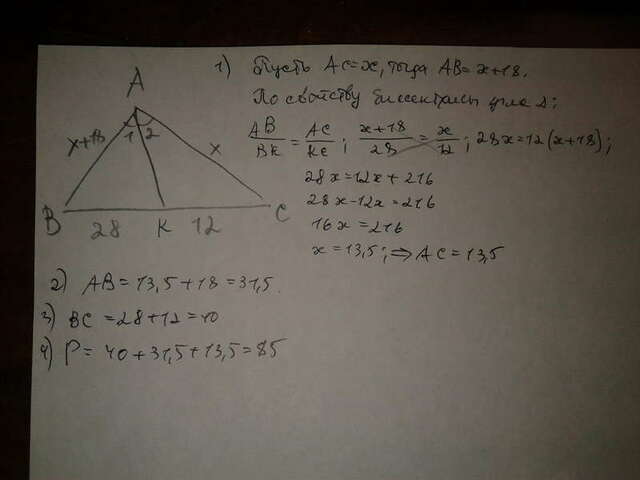 1) Пусть AC=x, тогда AB=x+18.
По свойству биссектрисы угла Δ:
AB/BK = AC/KC; x+18/28 = x/12; 28x=12(x+18);
28x=12x+216
28x-12x=216
16x=216
x=13,5; ⇒ AC=13,5
A
1 2
x+18
x
B 28 K 12 C
2) AB=13,5+18=31,5.
3) BC =28+12=40
4) P= 40+31,5+13,5=85